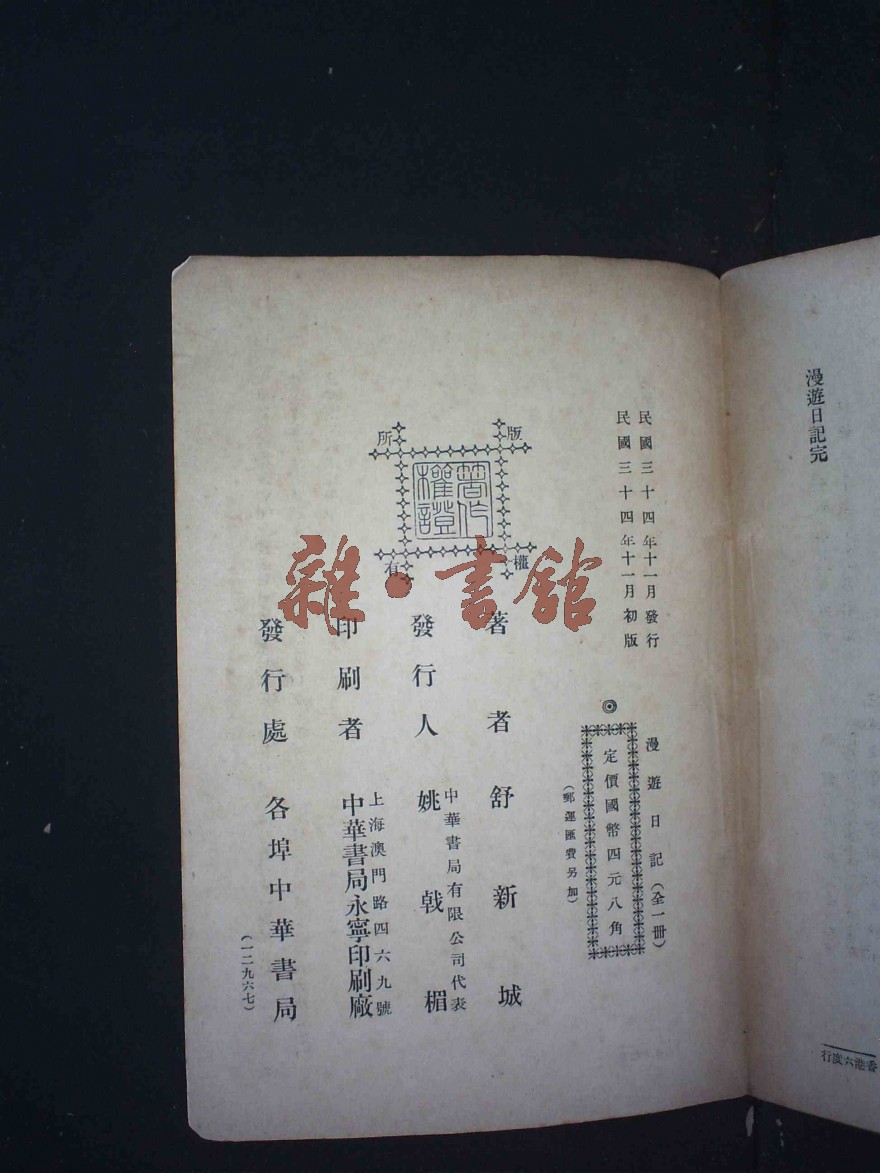 漫遊日記完
香港六度行
民國三十四年十一月發行
民國三十四年十一月初版
漫遊日記（全一冊）
◎
定價國幣四元八角
（郵運匯費另加）
版權所有
著作權證
著者 舒新城
發行人 中華書局有限公司代表
姚戟楣
印刷者 上海澳門路四六九號
中華書局永寧印刷廠
發行處 各埠中華書局
（一二九六七）
雜·書館